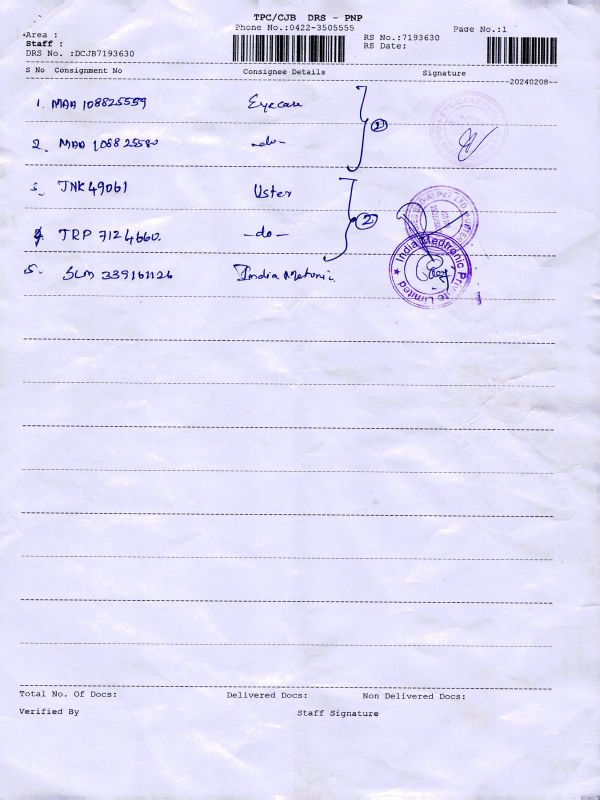 TPC/CJB DRS - PNP
Phone No.:0422-3505555
Page No.:1
Area :
RS No.:7193630
Staff :
RS Date:
DRS No. :DCJB7193630
S No Consignment No Consignee Details Signature
20240208
1. MAA 108825559 Eyecare
2. MAA 108825580 -do-
2
3. JNK 49061 Uster
4. TRP 7124660. -do-
2
5. SLM 339161126 India Metronic
India Medtronic Private Limited
Total No. Of Docs: Delivered Docs: Non Delivered Docs:
Verified By Staff Signature